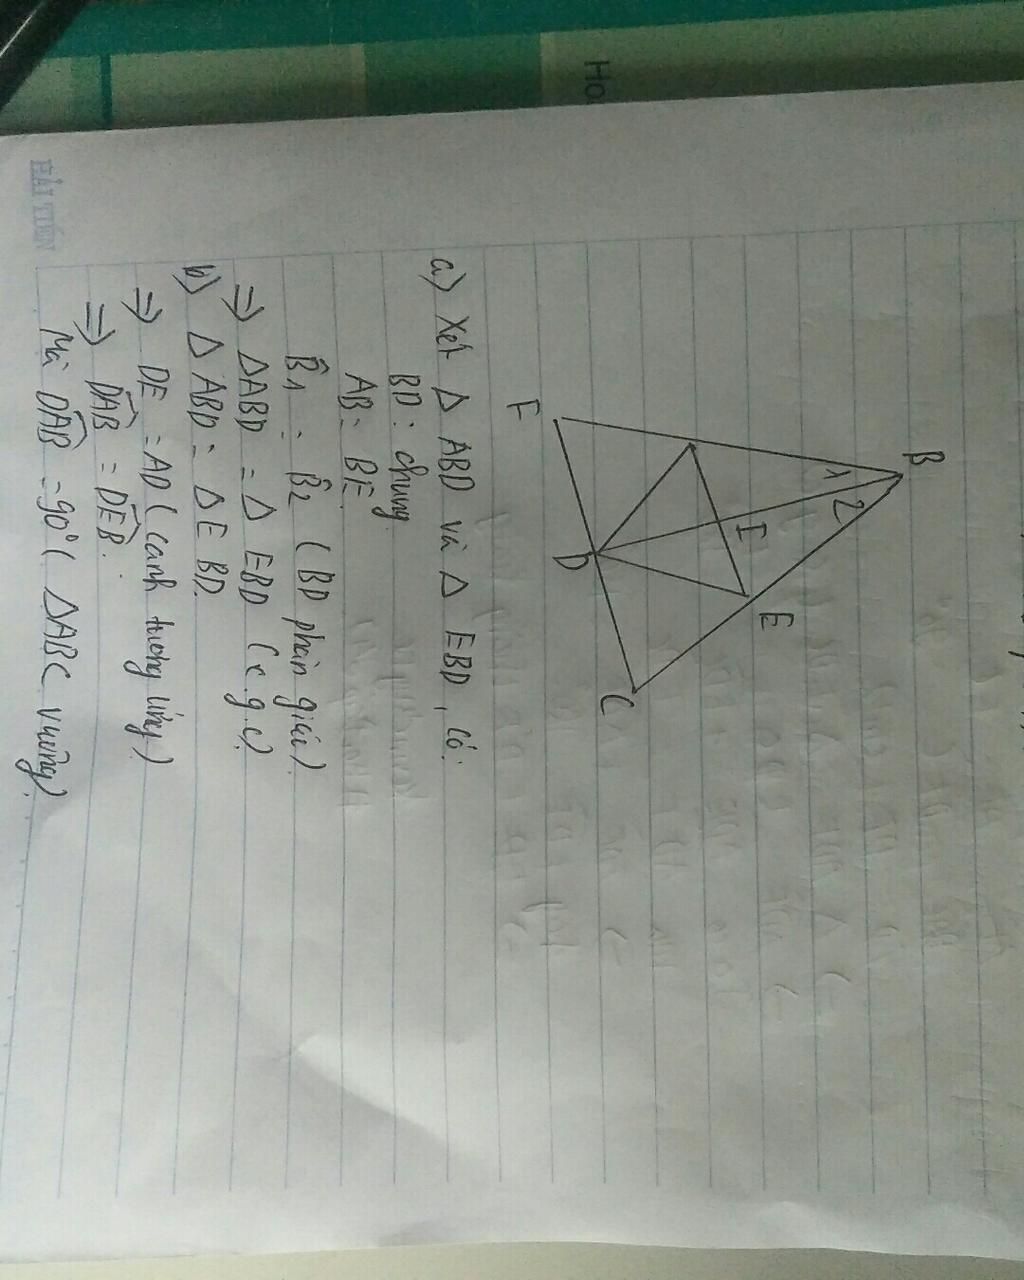 Ho
HẢI TIẾN
B
1 2
I
E
F
D
C
a) Xét Δ ABD và Δ EBD, có:
BD: chung
AB = BE.
B̂1 = B̂2 (BD phân giác)
=> ΔABD = Δ EBD (c.g.c)
b) Δ ABD = Δ EBD.
=> DE = AD (cạnh tương ứng)
=> DAB̂ = DEB̂.
Mà DAB̂ = 90° (ΔABC vuông)